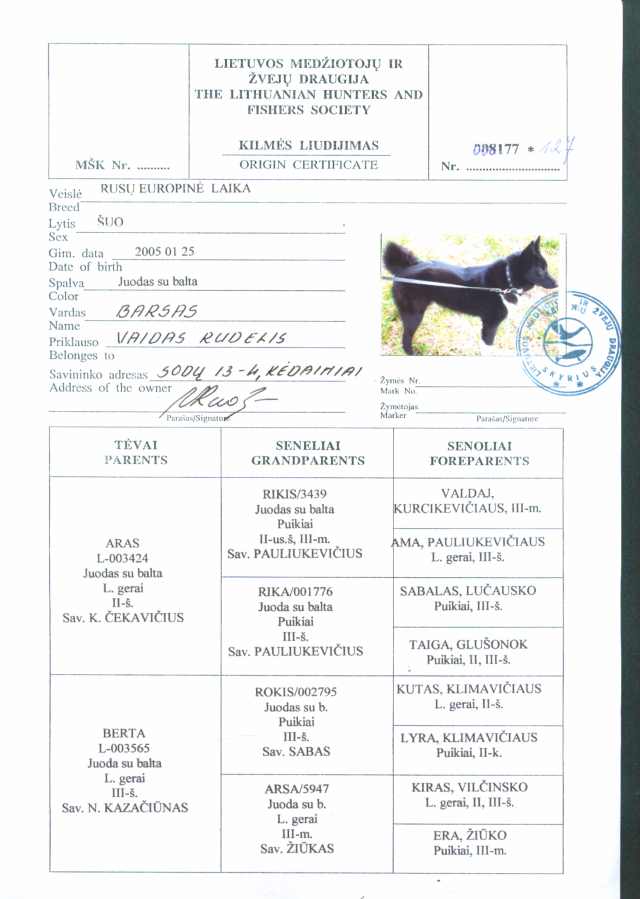 LIETUVOS MEDŽIOTOJŲ IR
ŽVEJŲ DRAUGIJA
THE LITHUANIAN HUNTERS AND
FISHERS SOCIETY
KILMĖS LIUDIJIMAS
ORIGIN CERTIFICATE
MŠK Nr. ..........
008177 * 127
Nr. ................................
Veislė RUSŲ EUROPINĖ LAIKA
Breed
Lytis ŠUO
Sex
Gim. data 2005 01 25
Date of birth
Spalva Juodas su balta
Color
Vardas BARSAS
Name
Priklauso VAIDAS RUDELIS
Belonges to
Savininko adresas SODŲ 13-4, KĖDAINIAI
Address of the owner
Parašas/Signature
Žymės Nr.
Mark No.
Žymėtojas
Marker
Parašas/Signature
LIETUVOS MEDŽIOTOJŲ IR ŽVEJŲ DRAUGIJA
SKYRIUS
TĖVAI
PARENTS
SENELIAI
GRANDPARENTS
SENOLIAI
FOREPARENTS
ARAS
L-003424
Juodas su balta
L. gerai
II-š.
Sav. K. ČEKAVIČIUS
RIKIS/3439
Juodas su balta
Puikiai
II-us.š, III-m.
Sav. PAULIUKEVIČIUS
VALDAJ,
KURCIKEVIČIAUS, III-m.
AMA, PAULIUKEVIČIAUS
L. gerai, III-š.
RIKA/001776
Juoda su balta
Puikiai
III-š.
Sav. PAULIUKEVIČIUS
SABALAS, LUČAUSKO
Puikiai, III-š.
TAIGA, GLUŠONOK
Puikiai, II, III-š.
BERTA
L-003565
Juoda su balta
L. gerai
III-š.
Sav. N. KAZAČIŪNAS
ROKIS/002795
Juodas su b.
Puikiai
III-š.
Sav. SABAS
KUTAS, KLIMAVIČIAUS
L. gerai, II-š.
LYRA, KLIMAVIČIAUS
Puikiai, II-k.
ARSA/5947
Juoda su b.
L. gerai
III-m.
Sav. ŽIŪKAS
KIRAS, VILČINSKO
L. gerai, II, III-š.
ERA, ŽIŪKO
Puikiai, III-m.